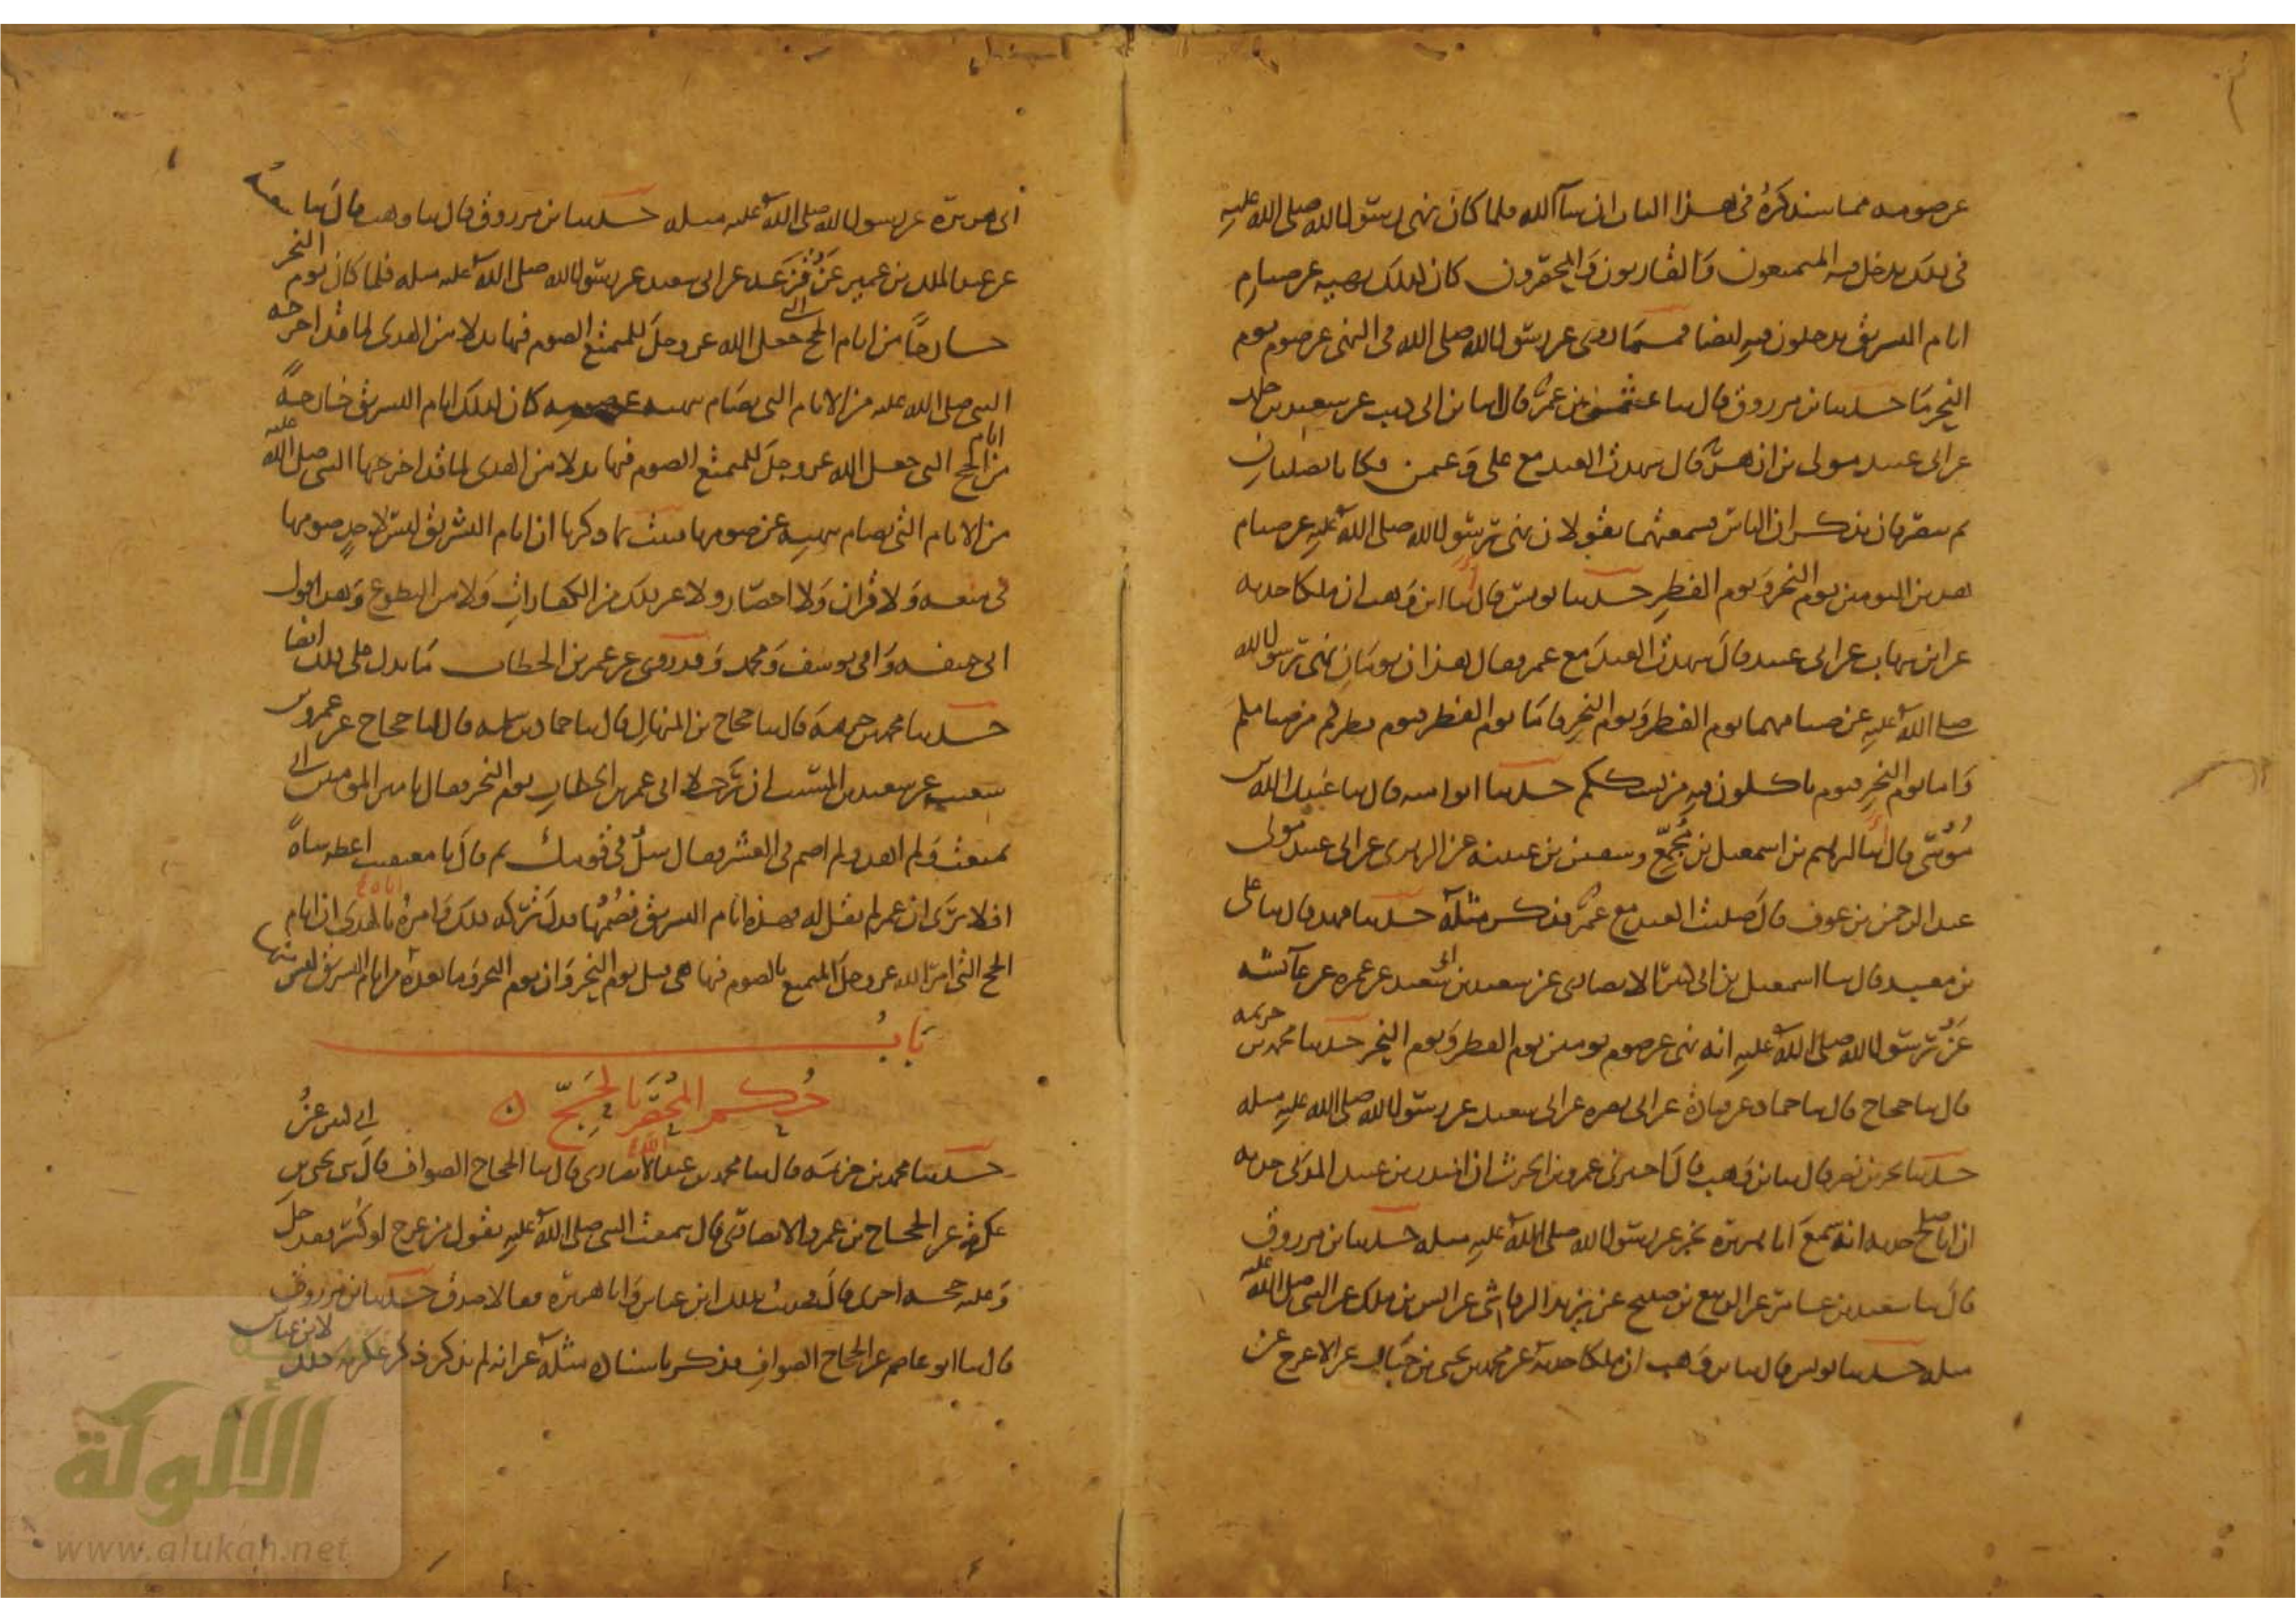 عن صومه مما سنذكره في هذا الباب ان شا الله فلما كان نهى رسول الله صلى الله عليه
في ذلك يدخل فيه المتمتعون والقارنون والمحصرون كان كذلك نهيه عن صيام
ايام التشريق يدخلون فيه ايضا فمما روى عن رسول الله صلى الله في النهى عن صوم يوم
النحر ما حدثنا بن مرزوق قال ثنا عثمن بن عمر قال ثنا بن ابى ذيب عن سعيد بن خلد
عن ابى عبيد مولى بن ازهر قال شهدت العيد مع على وعثمن فكانا يصليان
ثم ينصرفان يذكران الناس فسمعتهما يقولان نهى رسول الله صلى الله عليه عن صيام
هذين اليومين يوم النحر ويوم الفطر حدثنا يونس قال انا ابن وهب ان ملكا حدثه
عن ابن شهاب عن ابى عبيد قال شهدت العيد مع عمر فقال هذان يومان نهى رسول الله
صلى الله عليه عن صيامهما يوم الفطر ويوم النحر فاما يوم الفطر فيوم فطركم من صيامكم
واما يوم النحر فيوم تاكلون فيه من نسككم حدثنا ابو اميه قال ثنا عبيد الله بن
موسى قال انا ابراهيم بن اسمعيل بن مجمع وسفين بن عيينه عن الزهرى عن ابى عبيد مولى
عبد الرحمن بن عوف قال صليت العيد مع عمر فذكر مثله حدثنا فهد قال ثنا على
بن معبد قال ثنا اسمعيل بن ابى كثير الانصارى عن سعد بن سعيد عن عمره عن عائشه
عن رسول الله صلى الله عليه انه نهى عن صوم يومين يوم الفطر ويوم النحر حدثنا محمد بن خزيمه
قال ثنا حجاج قال ثنا حماد عن قتادة عن ابى نضره عن ابى سعيد عن رسول الله صلى الله عليه مثله
حدثنا بحر بن نصر قال ثنا بن وهب قال اخبرنى عمرو بن الحرث ان المنذر بن عبيد المدنى حدثه
ان ابا صلح حدثه انه سمع ابا هريرة يخبر عن رسول الله صلى الله عليه مثله حدثنا بن مرزوق
قال ثنا سعيد بن عامر عن الربيع بن صبيح عن يزيد الرقاشى عن انس بن ملك عن النبى صلى الله عليه
مثله حدثنا يونس قال ثنا بن وهب ان ملكا حدثه عن محمد بن يحيى بن حبان عن الاعرج عن
ابى هريرة عن رسول الله صلى الله عليه مثله حدثنا بن مرزوق قال ثنا وهب قال ثنا شعبة
عن عبد الملك بن عمير عن قزعه عن ابى سعيد عن رسول الله صلى الله عليه مثله فلما كان يوم النحر
خارجا من ايام الحج التى جعل الله عز وجل للمتمتع الصوم فيها بدلا من الهدى لما قد اخرجه
النبى صلى الله عليه من الايام التى يصام بنهيه عن صومه كان كذلك ايام التشريق خارجة
من ايام الحج التى جعل الله عز وجل للمتمتع الصوم فيها بدلا من الهدى لما قد اخرجها النبى صلى الله عليه
من الايام التى يصام بنهيه عن صومها فثبت بما ذكرنا ان ايام التشريق ليس لاحد صومها
في متعه ولا قران ولا احصار ولا غير ذلك من الكفارات ولا من التطوع وهذا قول
ابى حنيفه وابى يوسف ومحمد وقد روى عن عمر بن الخطاب ما يدل على ذلك ايضا
حدثنا محمد بن خزيمة قال ثنا حجاج بن المنهال قال ثنا حماد بن سلمه قال انا حجاج عن عمرو بن
شعيب عن سعيد بن المسيب ان رجلا اتى عمر بن الخطاب يوم النحر فقال يا امير المومنين انى
تمتعت ولم اهد ولم اصم فى العشر فقال سل فى قومك ثم قال يا معيقيب اعطه شاة
افلا ترى ان عمر لم يقل له فهذه ايام التشريق فصمها فدل تركه ذلك وامره اياه بالهدى ان ايام
الحج التى امر الله عز وجل المتمتع بالصوم فيها هى قبل يوم النحر وان يوم النحر وما بعده من ايام التشريق ليس منها
باب
حكم المحصر بالحج
حدثنا محمد بن خزيمه قال ثنا محمد بن عبد الله الانصارى قال ثنا الحجاج الصواف قال ثنى يحيى بن ابى كثير عن
عكرمه عن الحجاج بن عمرو الانصارى قال سمعت النبى صلى الله عليه يقول من عرج او كسر فقد حل
وعليه حجه اخرى قال فحدثت بذلك ابن عباس وابا هريرة فقالا صدق حدثنا بن مرزوق
قال ثنا ابو عاصم عن الحجاج الصواف فذكر باسناده مثله غير انه لم يذكر ذكر عكرمه ذلك لابن عباس
الألوكة
www.alukah.net